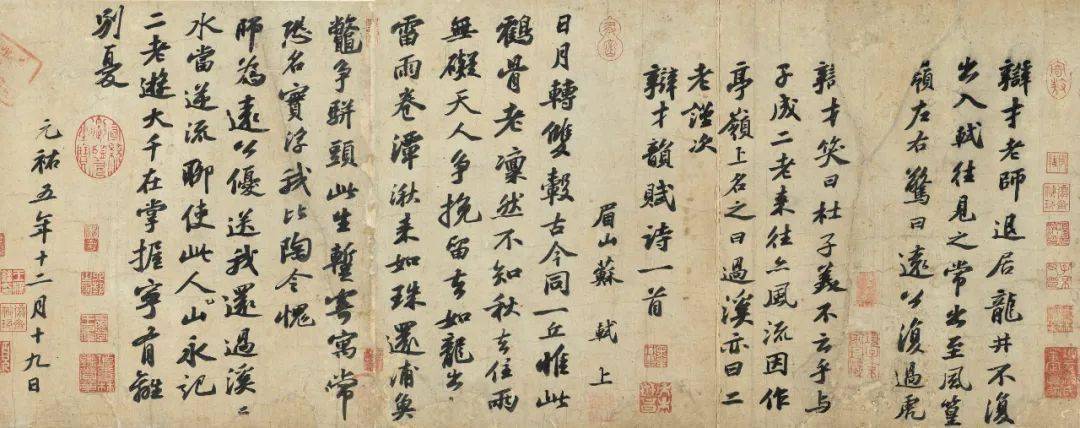 辯才老師退居龍井不復
出入軾往見之常出至風篁
嶺左右驚曰遠公復過虎
辯才笑曰杜子美不云乎與
子成二老来往亦風流因作
亭嶺上名之曰過溪亦曰二
老謹次
辯才韻賦詩一首
眉山蘇 軾 上
日月轉雙轂古今同一丘惟此
鶴骨老凜然不知秋去住兩
無礙天人爭挽留去如龍出
雷雨卷潭湫来如珠還浦魚
鼈爭駢頭此生蹔寄寓常
恐名實浮我比陶令愧
師為遠公優送我還過溪〻
水當逆流聊使此人山永記
二老遊大千在掌握寧有離
別憂
元祐五年十二月十九日